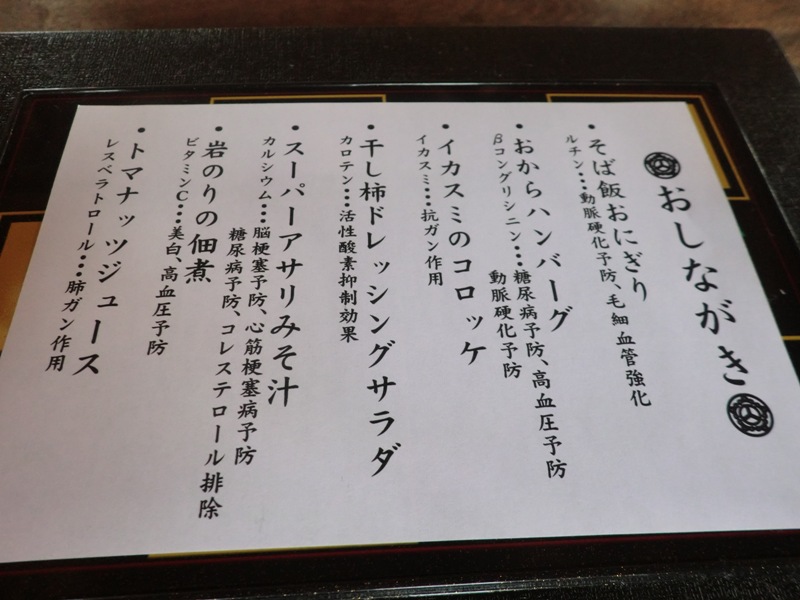 おしながき
・そば飯おにぎり
ルチン…動脈硬化予防、毛細血管強化
・おからハンバーグ
βコングリシニン…糖尿病予防、高血圧予防
動脈硬化予防
・イカスミのコロッケ
イカスミ…抗ガン作用
・干し柿ドレッシングサラダ
カロテン…活性酸素抑制効果
・スーパーアサリみそ汁
カルシウム…脳梗塞予防、心筋梗塞病予防
糖尿病予防、コレステロール排除
・岩のりの佃煮
ビタミンC…美白、高血圧予防
・トマナッツジュース
レスベラトロール…肺ガン作用